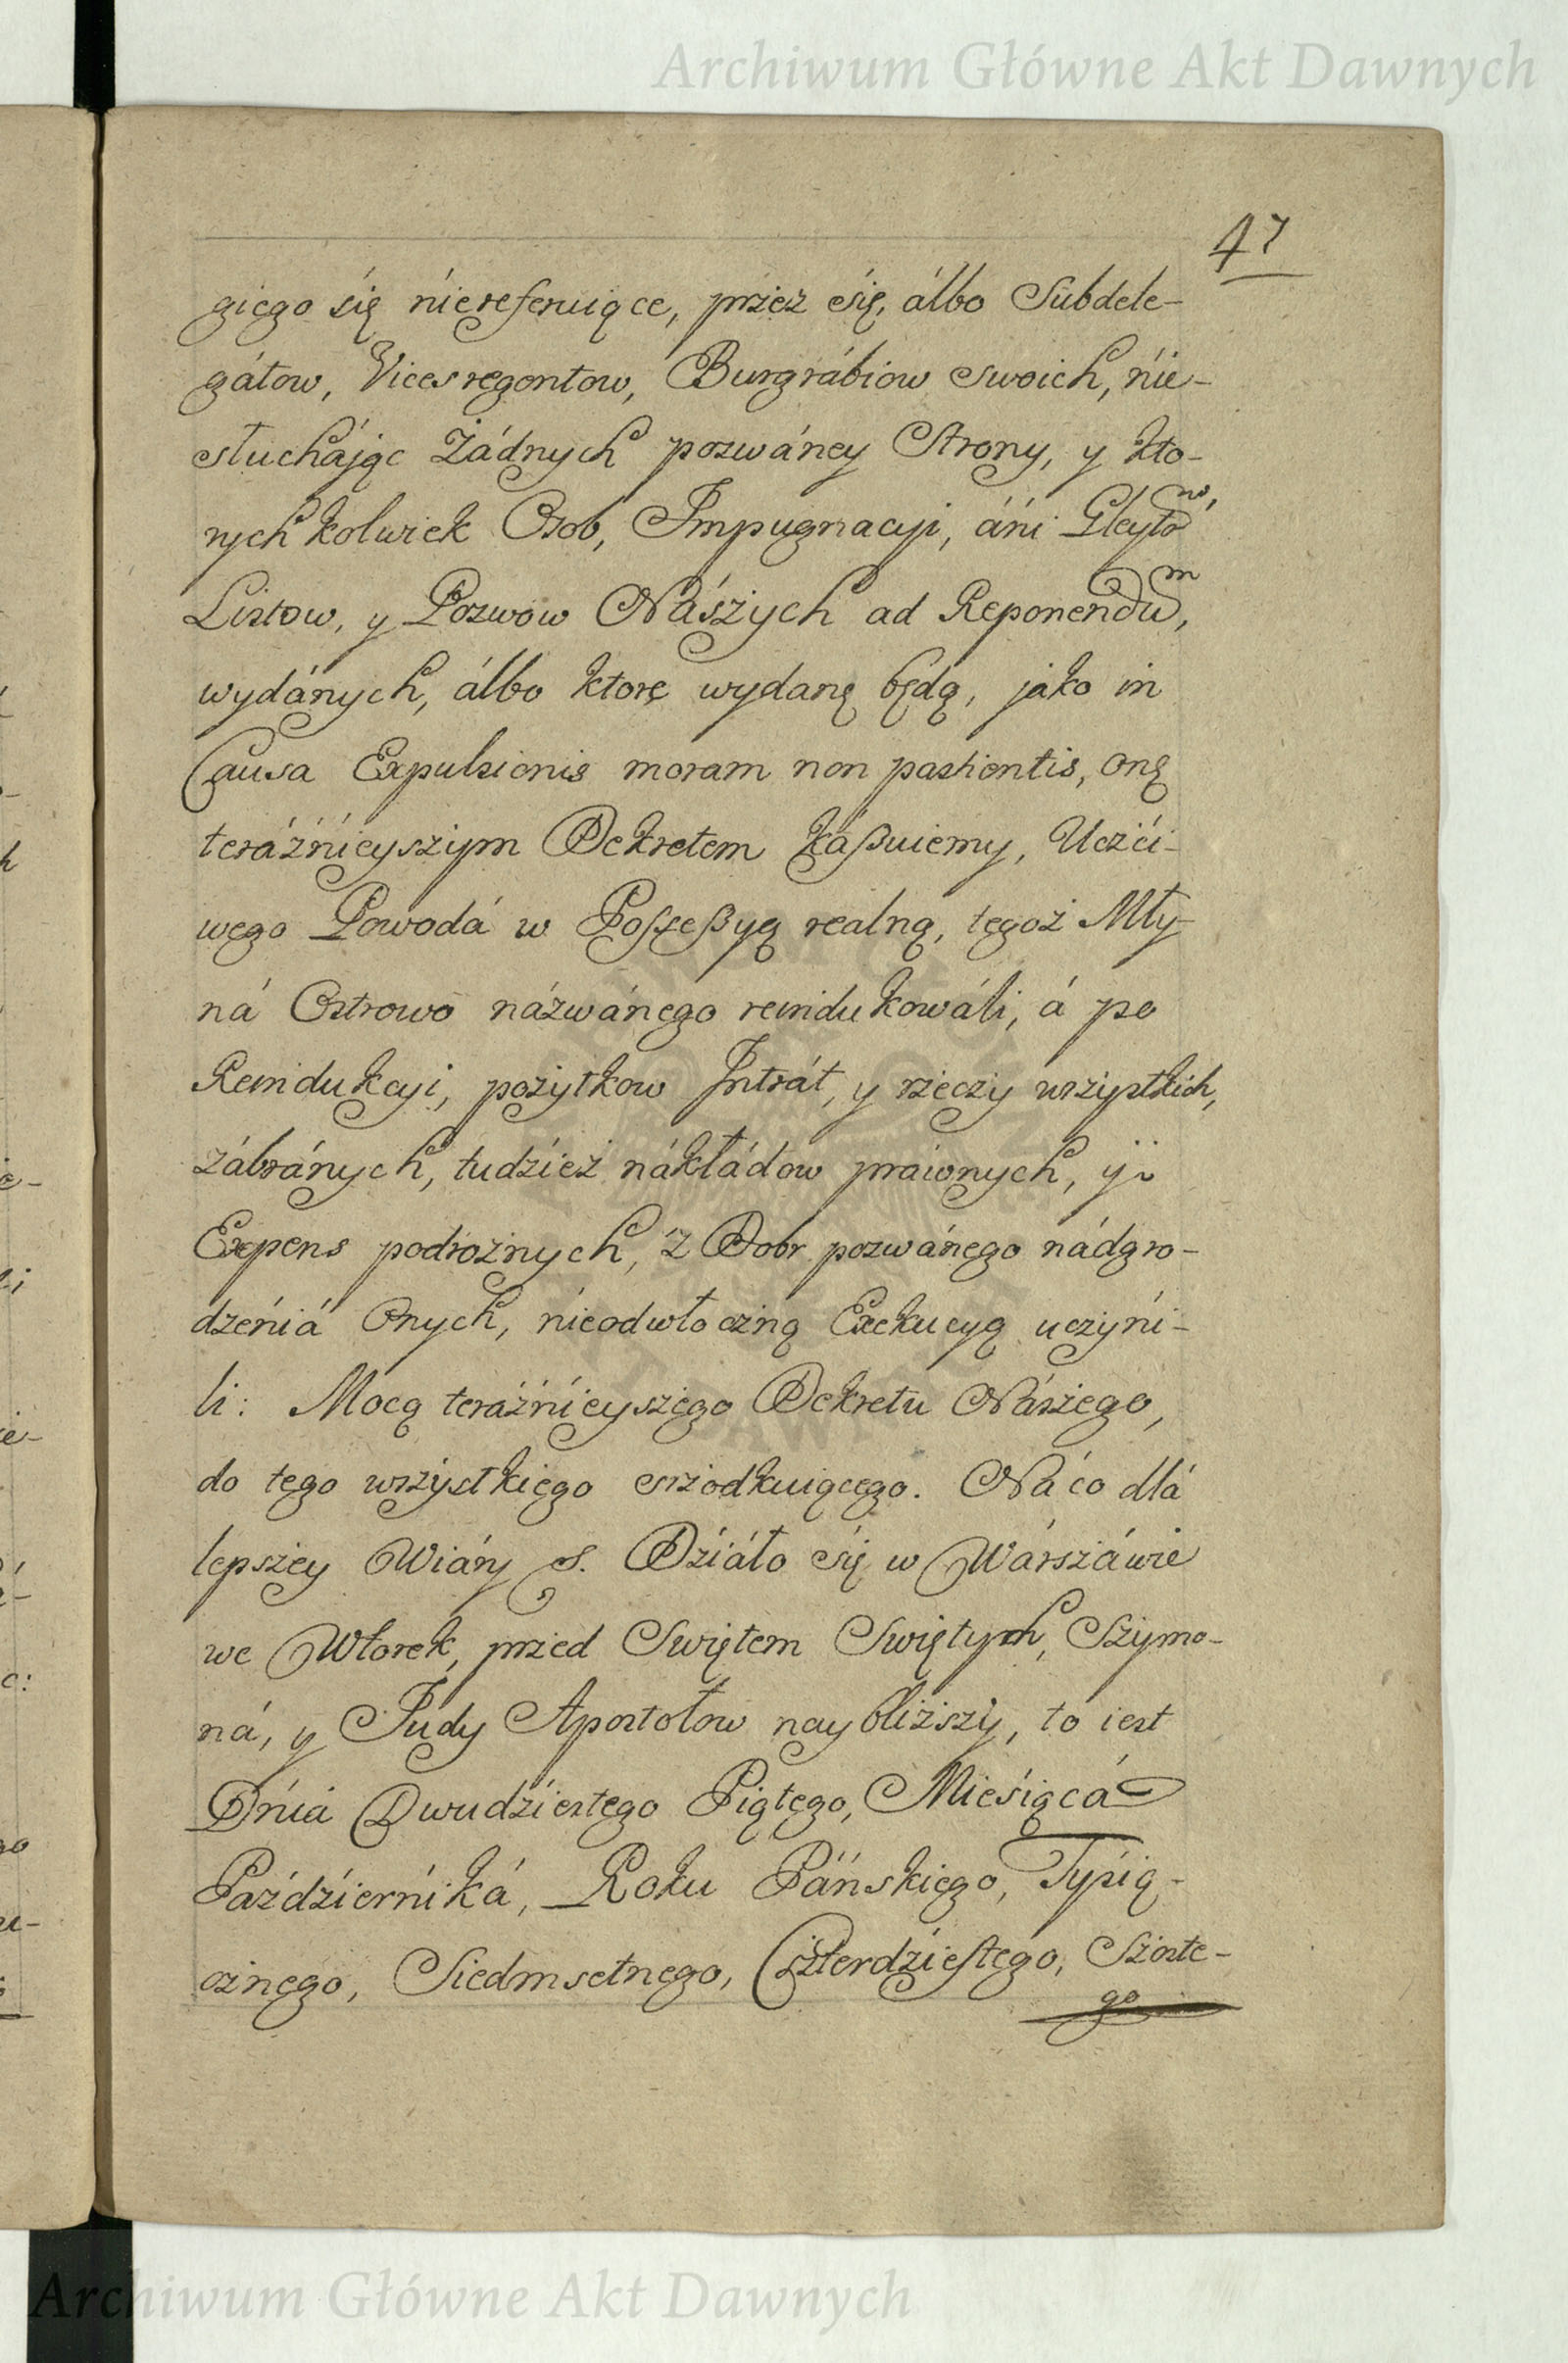 Archiwum Główne Akt Dawnych
47
giego się niereferuiące, przez się, álbo Subdele-
gátow, Vicesregentow, Burgrábiow swoich, nie-
słuchájąc Żádnych pozwáney Strony, y kto-
rych kolwiek Osob, Impugnacyi, áni Gleytow,
Listow, y Pozwow Nászych ad Reponendum,
wydánych, álbo ktorę wydanę będą, jako in
Causa Expulsionis moram non patientis, onę
teráźnieyszym Dekretem káßuiemy, Uczci-
wego Powodá w Posseßyą realną, tegoż Mły-
ná Ostrowo názwánego reindukowáli, á po
Reindukcyi, pożytkow Intrát, y rzeczy wszystkich,
zábránych, tudzież nákłádow prawnych, y
Expens podrożnych, z Dobr pozwánego nádgro-
dzeniá Onych, nieodwłoczną Exekucyą uczyni-
li: Mocą teráźnieyszego Dekretu Nászego,
do tego wszystkiego srzodkuiącego. Ná co dlá
lepszey Wiáry S. Dziáło się w Wárszáwie
we Wtorek, przed Swiętem Swiętych, Szymo-
ná, y Judy Apostołow naybliższy, to iest
Dnia Dwudziestego Piątego, Miesiącá
Październiká, Roku Páńskiego, Tysią-
cznego, Siedmsetnego, Czterdziestego, Szoste-
go
Archiwum Główne Akt Dawnych